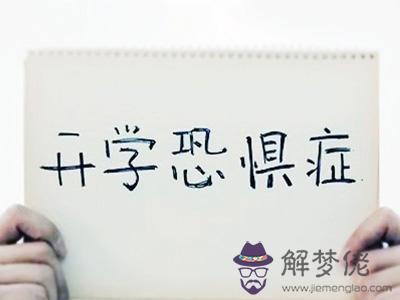 开学恐惧症
解梦佬
www.jiemenglao.com